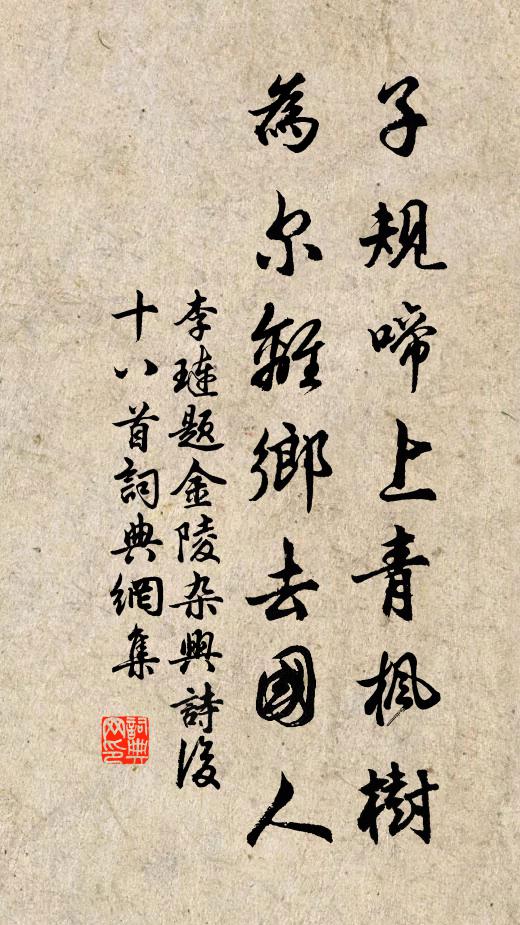 子規啼上青楓樹
為尔離鄉去國人
李璉題金陵杂興詩後
十八首詞典網集
詞典网印